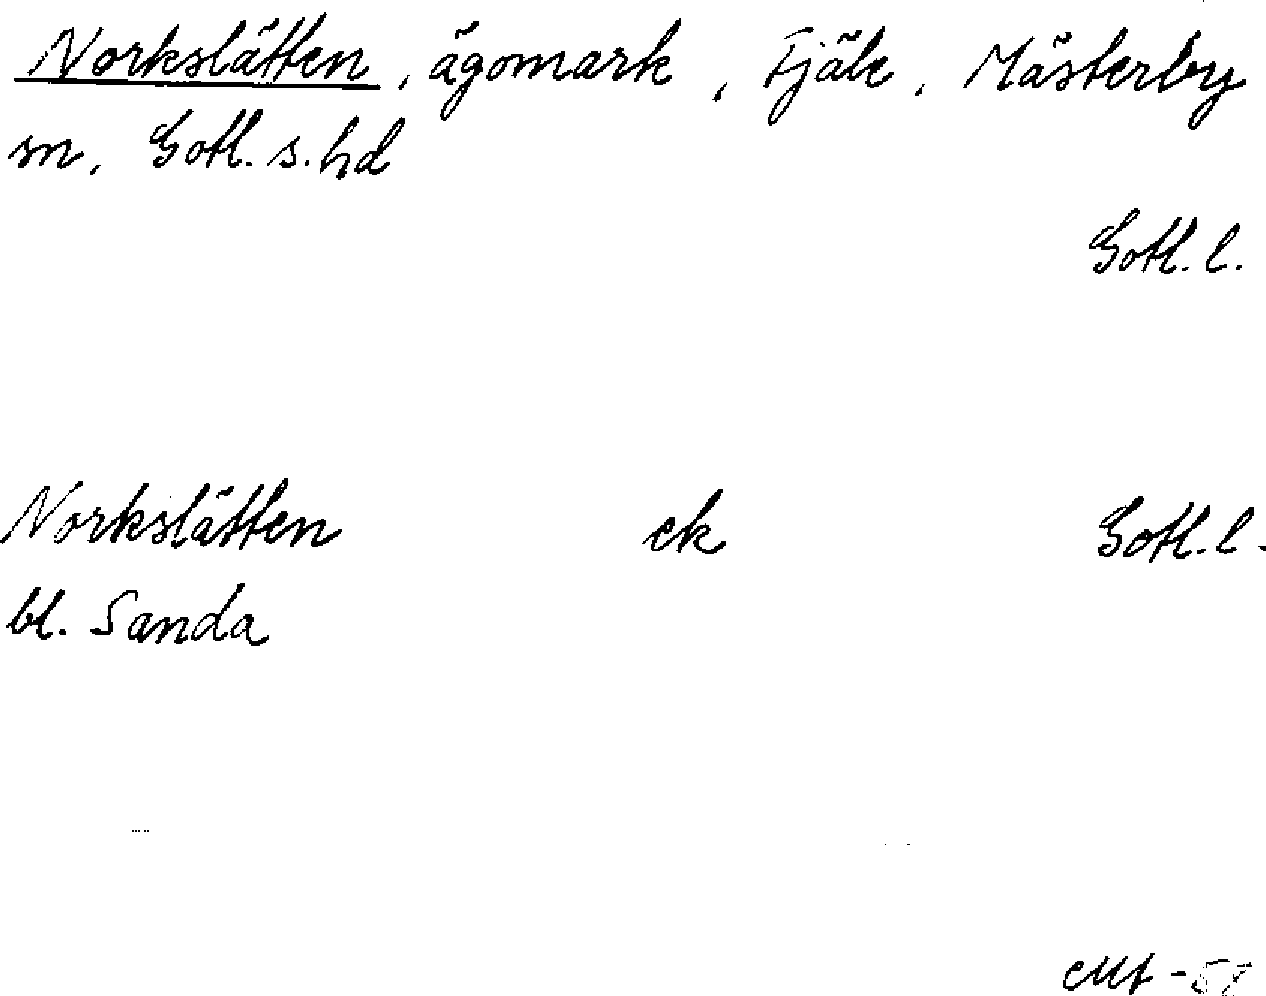 Norkslätten, ägomark, Fjäle, Mästerby
sn, Gotl. s. hd
Gotl. l.
Norkslätten ek Gotl. l.
bl. Sanda